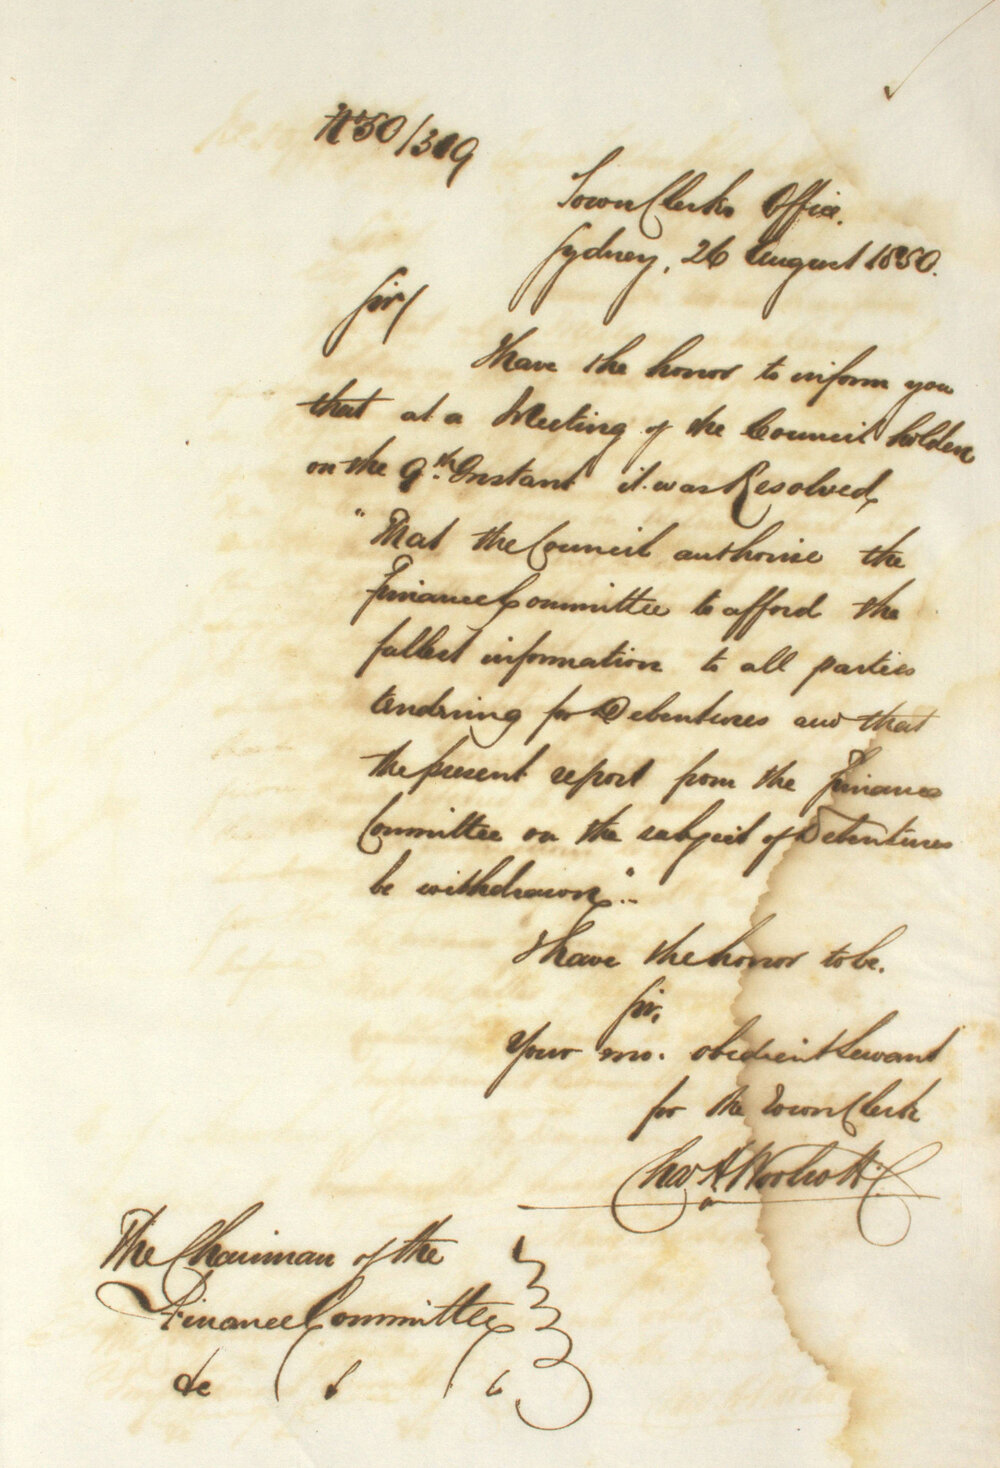 No 50/309
Town Clerks Office.
Sydney, 26 August 1850.
Sir,
I have the honor to inform you
that at a Meeting of the Council holden
on the 9th. Instant it was Resolved,
"That the Council authorise the
Finance Committee to afford the
fullest information to all parties
tendering for Debentures and that
the present report from the Finance
Committee on the subject of Debentures
be withdrawn."
I have the honor to be.
Sir,
Your mo. obedient Servant
for the Town Clerk
Chas H Woolcott
The Chairman of the
Finance Committee
&c & &